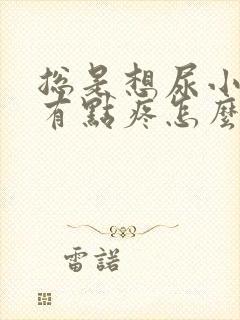 总是想尿小
有點疼怎麼
雷諾